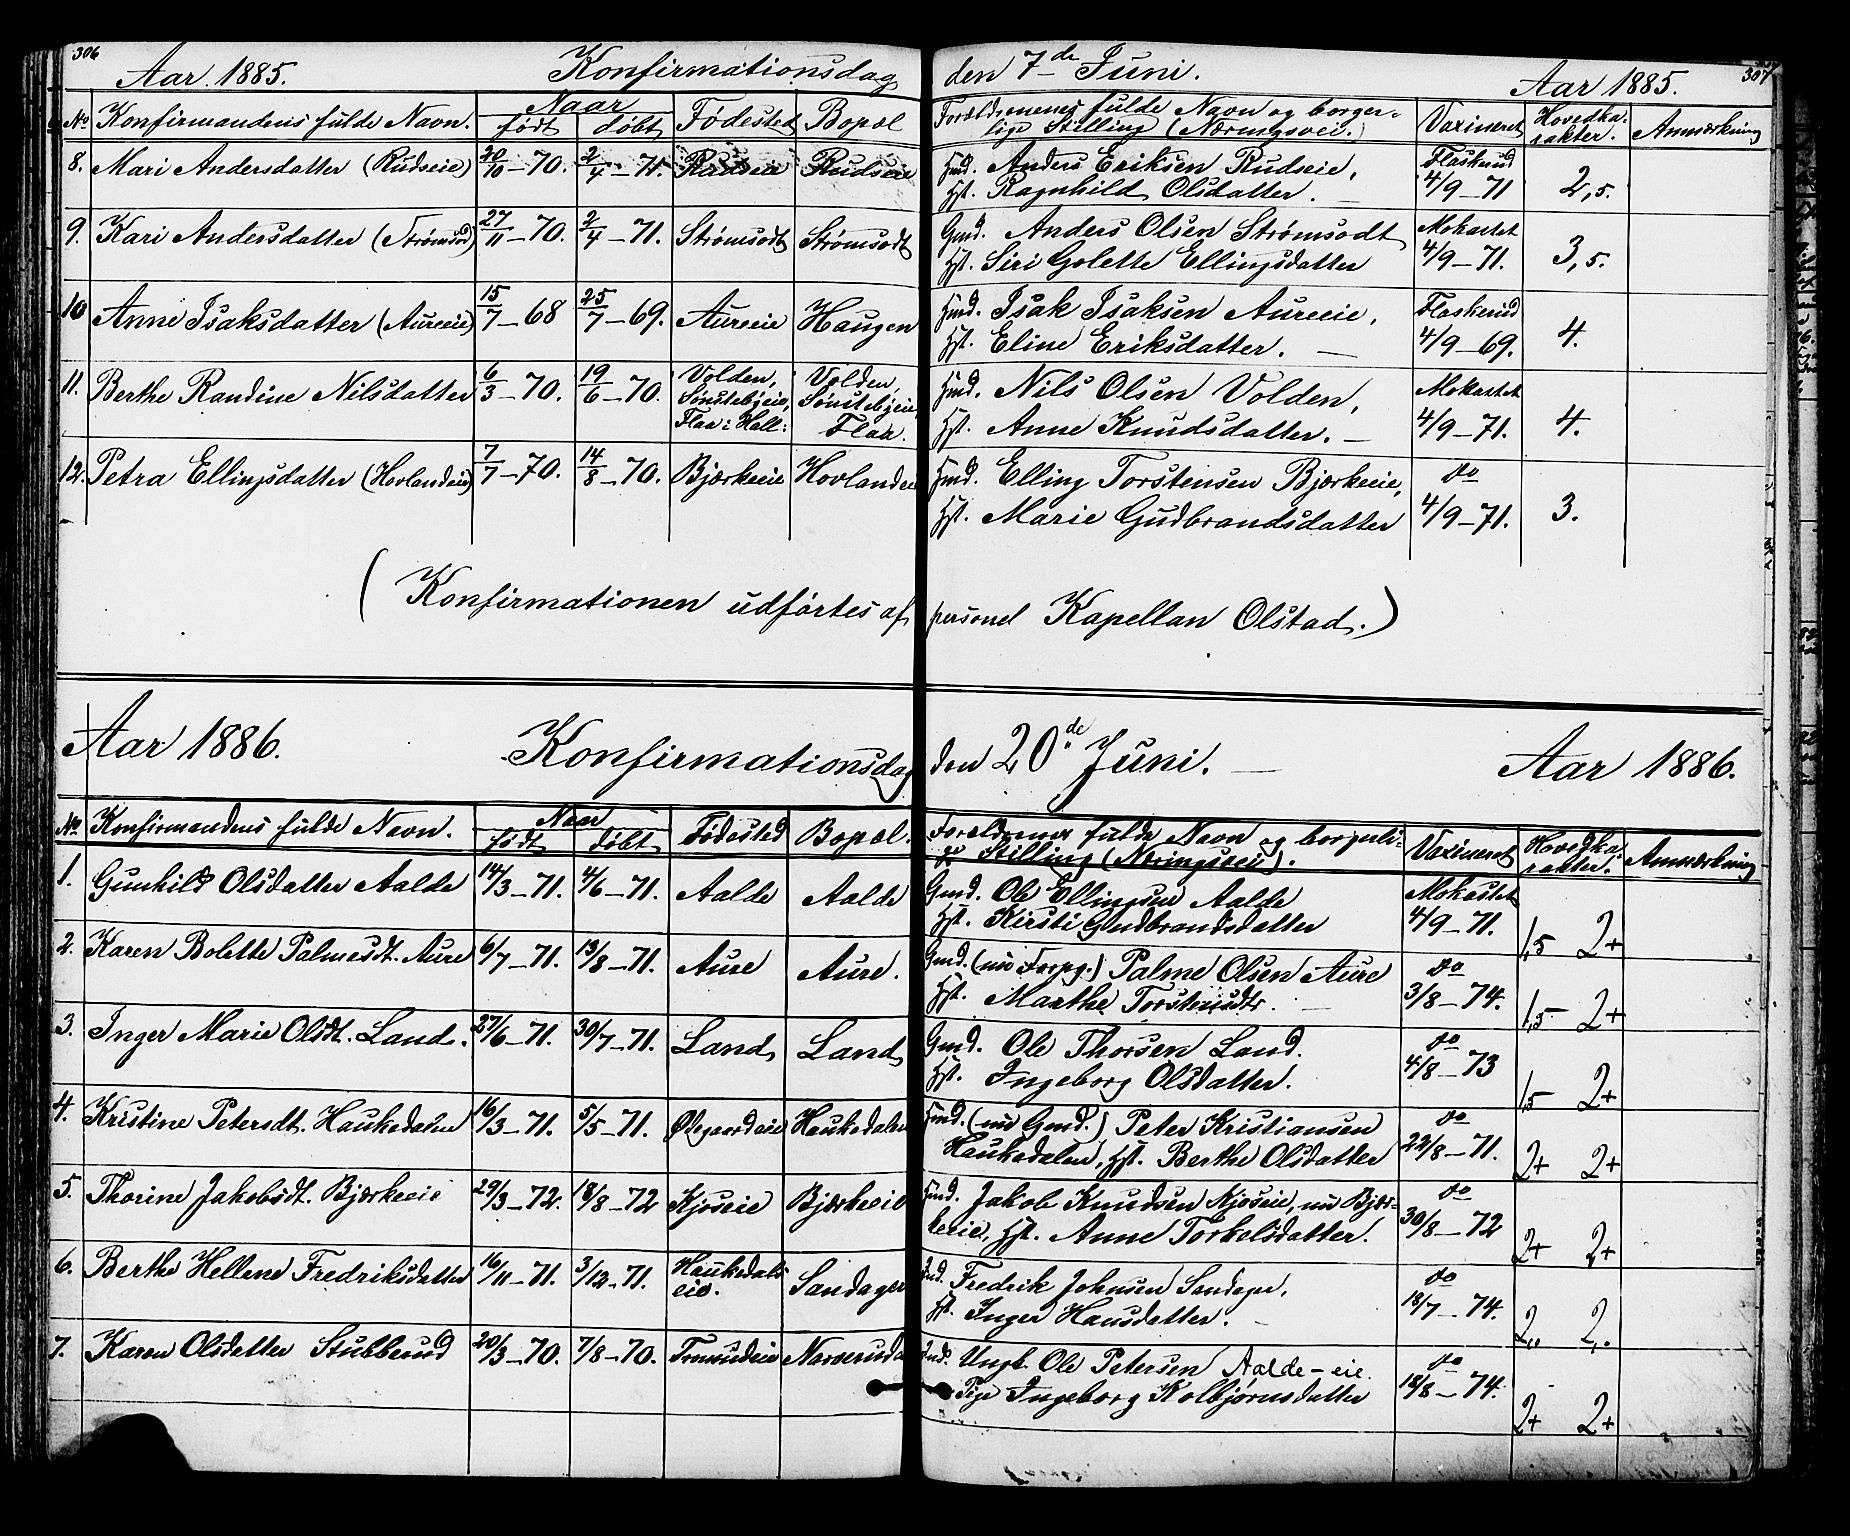 306
Aar 1885. Konfirmationsdag den 7de Juni. Aar 1885. 307
No Konfirmandens fulde Navn. Naar født døbt Fødested Bopæl Forældrenes fulde Navn og borger-lige Stilling (Næringsvei.) Vaxineret Hovedka-rakter. Anmærkning
8. Mari Andersdatter (Rudseie) 20/10-70. 2/4-71. Rudseie Rudseie Hmd. Anders Eriksen Rudseie, Flaskerud
Hst. Ragnhild Olsdatter. 4/9-71 2,5.
9. Kari Andersdatter (Strømsod) 27/11-70. 2/4-71. Strømsodt Strømsodt Gmd. Anders Olsen Strømsodt Mokastet
Hst. Siri Golette Ellingsdatter 4/9-71. 3,5.
10 Anne Isaksdatter (Aureeie) 15/7-68 25/7-69. Aureeie Haugen Hmd. Isak Isaksen Aureeie, Flaskerud
Hst. Eline Eriksdatter. 4/9-69. 4.
11. Berthe Randine Nilsdatter 6/3-70. 19/6-70. Volden, Sønstebyeie, Flaa i Hall: Volden, Sønstebyeie, Flaa. Hmd. Nils Olsen Volden, Mokastet
Hst. Anne Knudsdatter. 4/9-71. 4.
12. Petra Ellingsdatter (Hovlandeie) 7/7-70. 14/8-70. Bjærkeeie Hovlandeie Hmd. Elling Torstensen Bjærkeeie, do
Hst. Marie Gudbrandsdatter 4/9-71. 3.
(Konfirmationen udførtes af personel Kapellan Olstad.)
Aar 1886. Konfirmationsdag den 20de Juni. Aar 1886.
No Konfirmandens fulde Navn. Naar født døbt Fødested Bopæl. Forældrenes fulde Navn og borgerli-ge Stilling (Næringsvei). Vaxineret Hovedka-rakter. Anmærkning
1. Gunhild Olsdatter Aalde 14/3-71. 4/6-71. Aalde Aalde Gmd. Ole Ellingsen Aalde Mokastet
Hst. Kirsti Gudbrandsdatter 4/9-71. 1,5 2+
2. Karen Bolette Palmesdt. Aure 6/7-71. 13/8-71. Aure Aure. Gmd. (nu Forpg.) Palme Olsen Aure do
Hst. Marthe Torstensdtr. 3/8-74. 1,5 2+
3. Inger Marie Olsdt. Land. 27/6-71. 30/7-71. Land Land Gmd. Ole Thorsen Land. do
Hst. Ingeborg Olsdatter. 4/8-73 1,5 2+
4. Kristine Petersdt. Haukedalen 16/3-71. 5/5-71. Øiegaardeie Haukedalen Hmd. (nu Gmd.) Peter Kristiansen do
Haukedalen, Hst. Berthe Olsdatter 22/8-71. 2+ 2+
5. Thorine Jakobsdt. Bjærkeeie 29/3-72. 18/8-72 Kjoseie Bjærkeeie Hmd. Jakob Knudsen Kjoseie, nu Bjær- do
keeie, Hst. Anne Torkelsdatter. 30/8-72 2+ 2+
6. Berthe Hellene Fredriksdatter 16/11-71. 3/12-71. Haukedals eie. Sandager Hmd. Fredrik Johnsen Sandager, do
Hst. Inger Hansdatter. 18/7-74. 2,. 2,.
7. Karen Olsdatter Stubberud 20/3-70. 7/8-70. Tromsudeie Narverud Hmd. Ungk. Ole Petersen Aalde-eie. do
Pige Ingeborg Kolbjørnsdatter 18/8-74. 2+ 2+